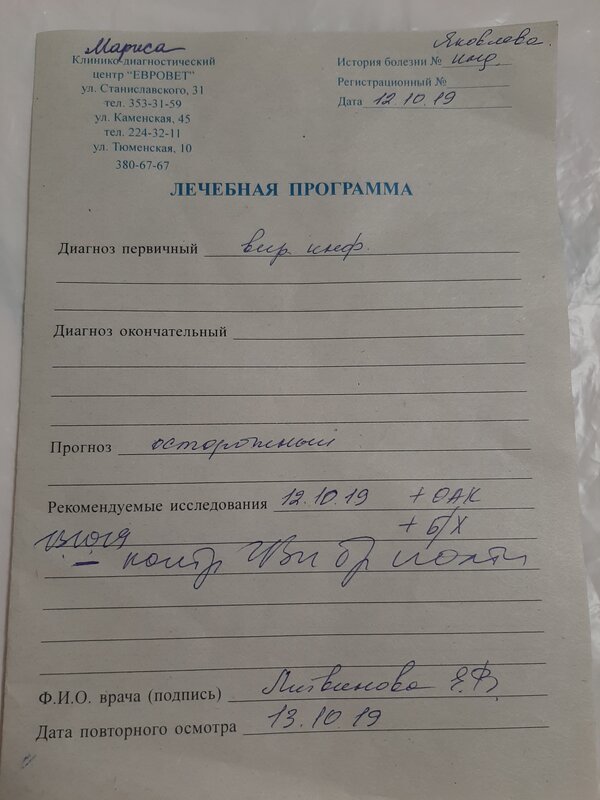 Мариса
Клинико-диагностический
центр "ЕВРОВЕТ"
ул. Станиславского, 31
тел. 353-31-59
ул. Каменская, 45
тел. 224-32-11
ул. Тюменская, 10
380-67-67
Яковлева
История болезни №
Регистрационный №
Дата 12.10.19
ЛЕЧЕБНАЯ ПРОГРАММА
Диагноз первичный вир. инф.
Диагноз окончательный
Прогноз осторожный
Рекомендуемые исследования 12.10.19 + ОАК
+ б/х
Ф.И.О. врача (подпись) Литвинова Е.Ф.
Дата повторного осмотра 13.10.19